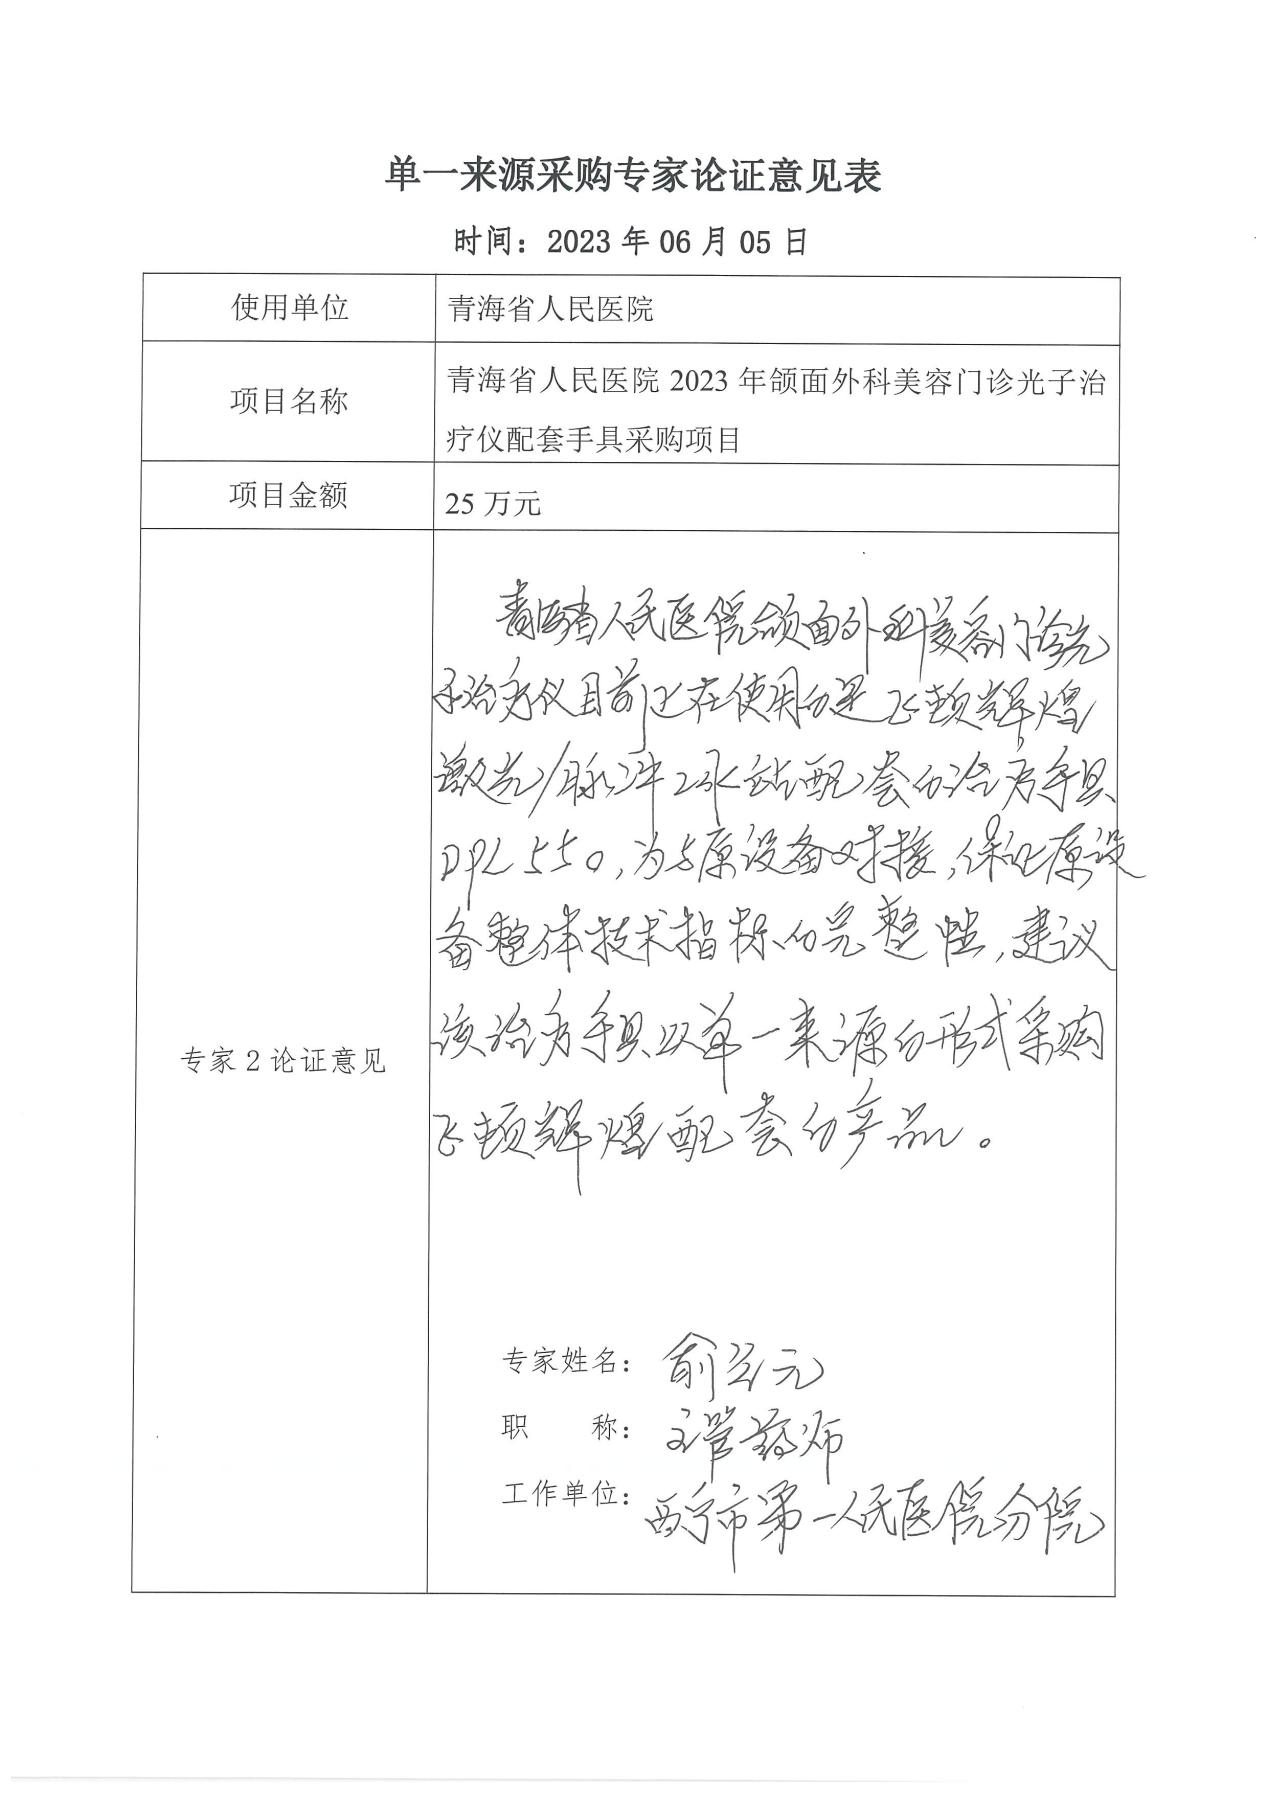 单一来源采购专家论证意见表
时间：2023 年 06 月 05 日
使用单位
青海省人民医院
项目名称
青海省人民医院 2023 年颌面外科美容门诊光子治
疗仪配套手具采购项目
项目金额
25 万元
专家 2 论证意见
青海省人民医院颌面外科美容门诊光
子治疗仪目前正在使用的是飞顿辉煌
激光/脉冲工作站配套的治疗手具
DPL 550，为与原设备对接，保证原设
备整体技术指标的完整性，建议
该治疗手具以单一来源的形式采购
飞顿辉煌配套的产品。
专家姓名：俞兰元
职 称：主管药师
工作单位：西宁市第一人民医院分院